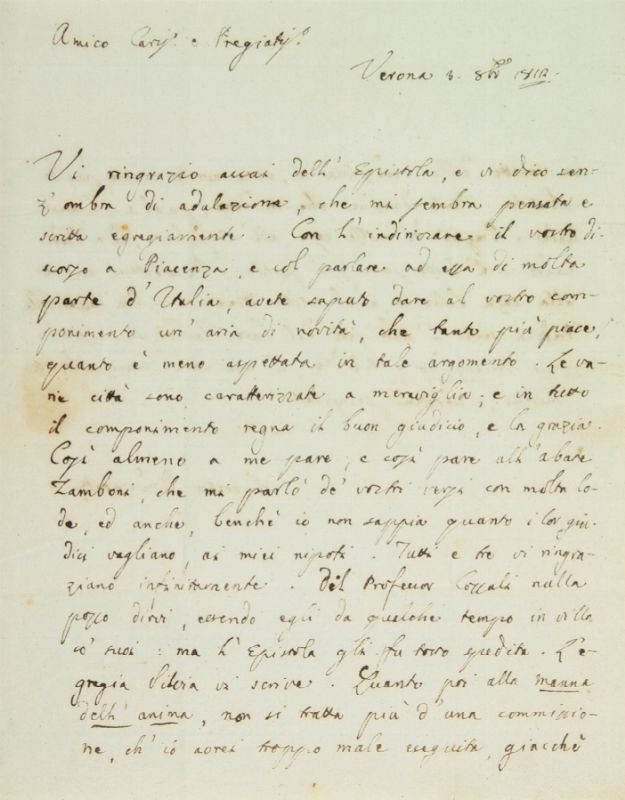 Amico Cariss.o e Pregiatiss.o
Verona 3. 8bre 1812.
Vi ringrazio assai dell' Epistola, e vi dico sen-
z' ombra di adulazione, che mi sembra pensata e
scritta egregiamente. Con l' indirizzare il vostro di-
scorso a Piacenza, e col parlare ad essa di molta
parte d' Italia, avete saputo dare al vostro com-
ponimento un' aria di novità, che tanto più piace,
quanto è meno aspettata in tale argomento. Le va-
rie città sono caratterizzate a meraviglia; e in tutto
il componimento regna il buon giudicio, e la grazia.
Così almeno a me pare; e così pare all' abate
Zamboni, che mi parlò de' vostri versi con molta lo-
de, ed anche, benchè io non sappia quanto i lor giu-
dici vagliano, ai miei nipoti. Tutti e tre vi ringra-
ziano infinitamente. Del Professor Cossali nulla
posso dirvi, essendo egli da qualche tempo in villa
co' suoi: ma l' Epistola gli fu tosto spedita. L' e-
gregia Silvia vi scrive. Quanto poi alla manna
dell' anima, non si tratta più d' una commissio-
ne, ch' io avrei troppo male eseguita, giacchè